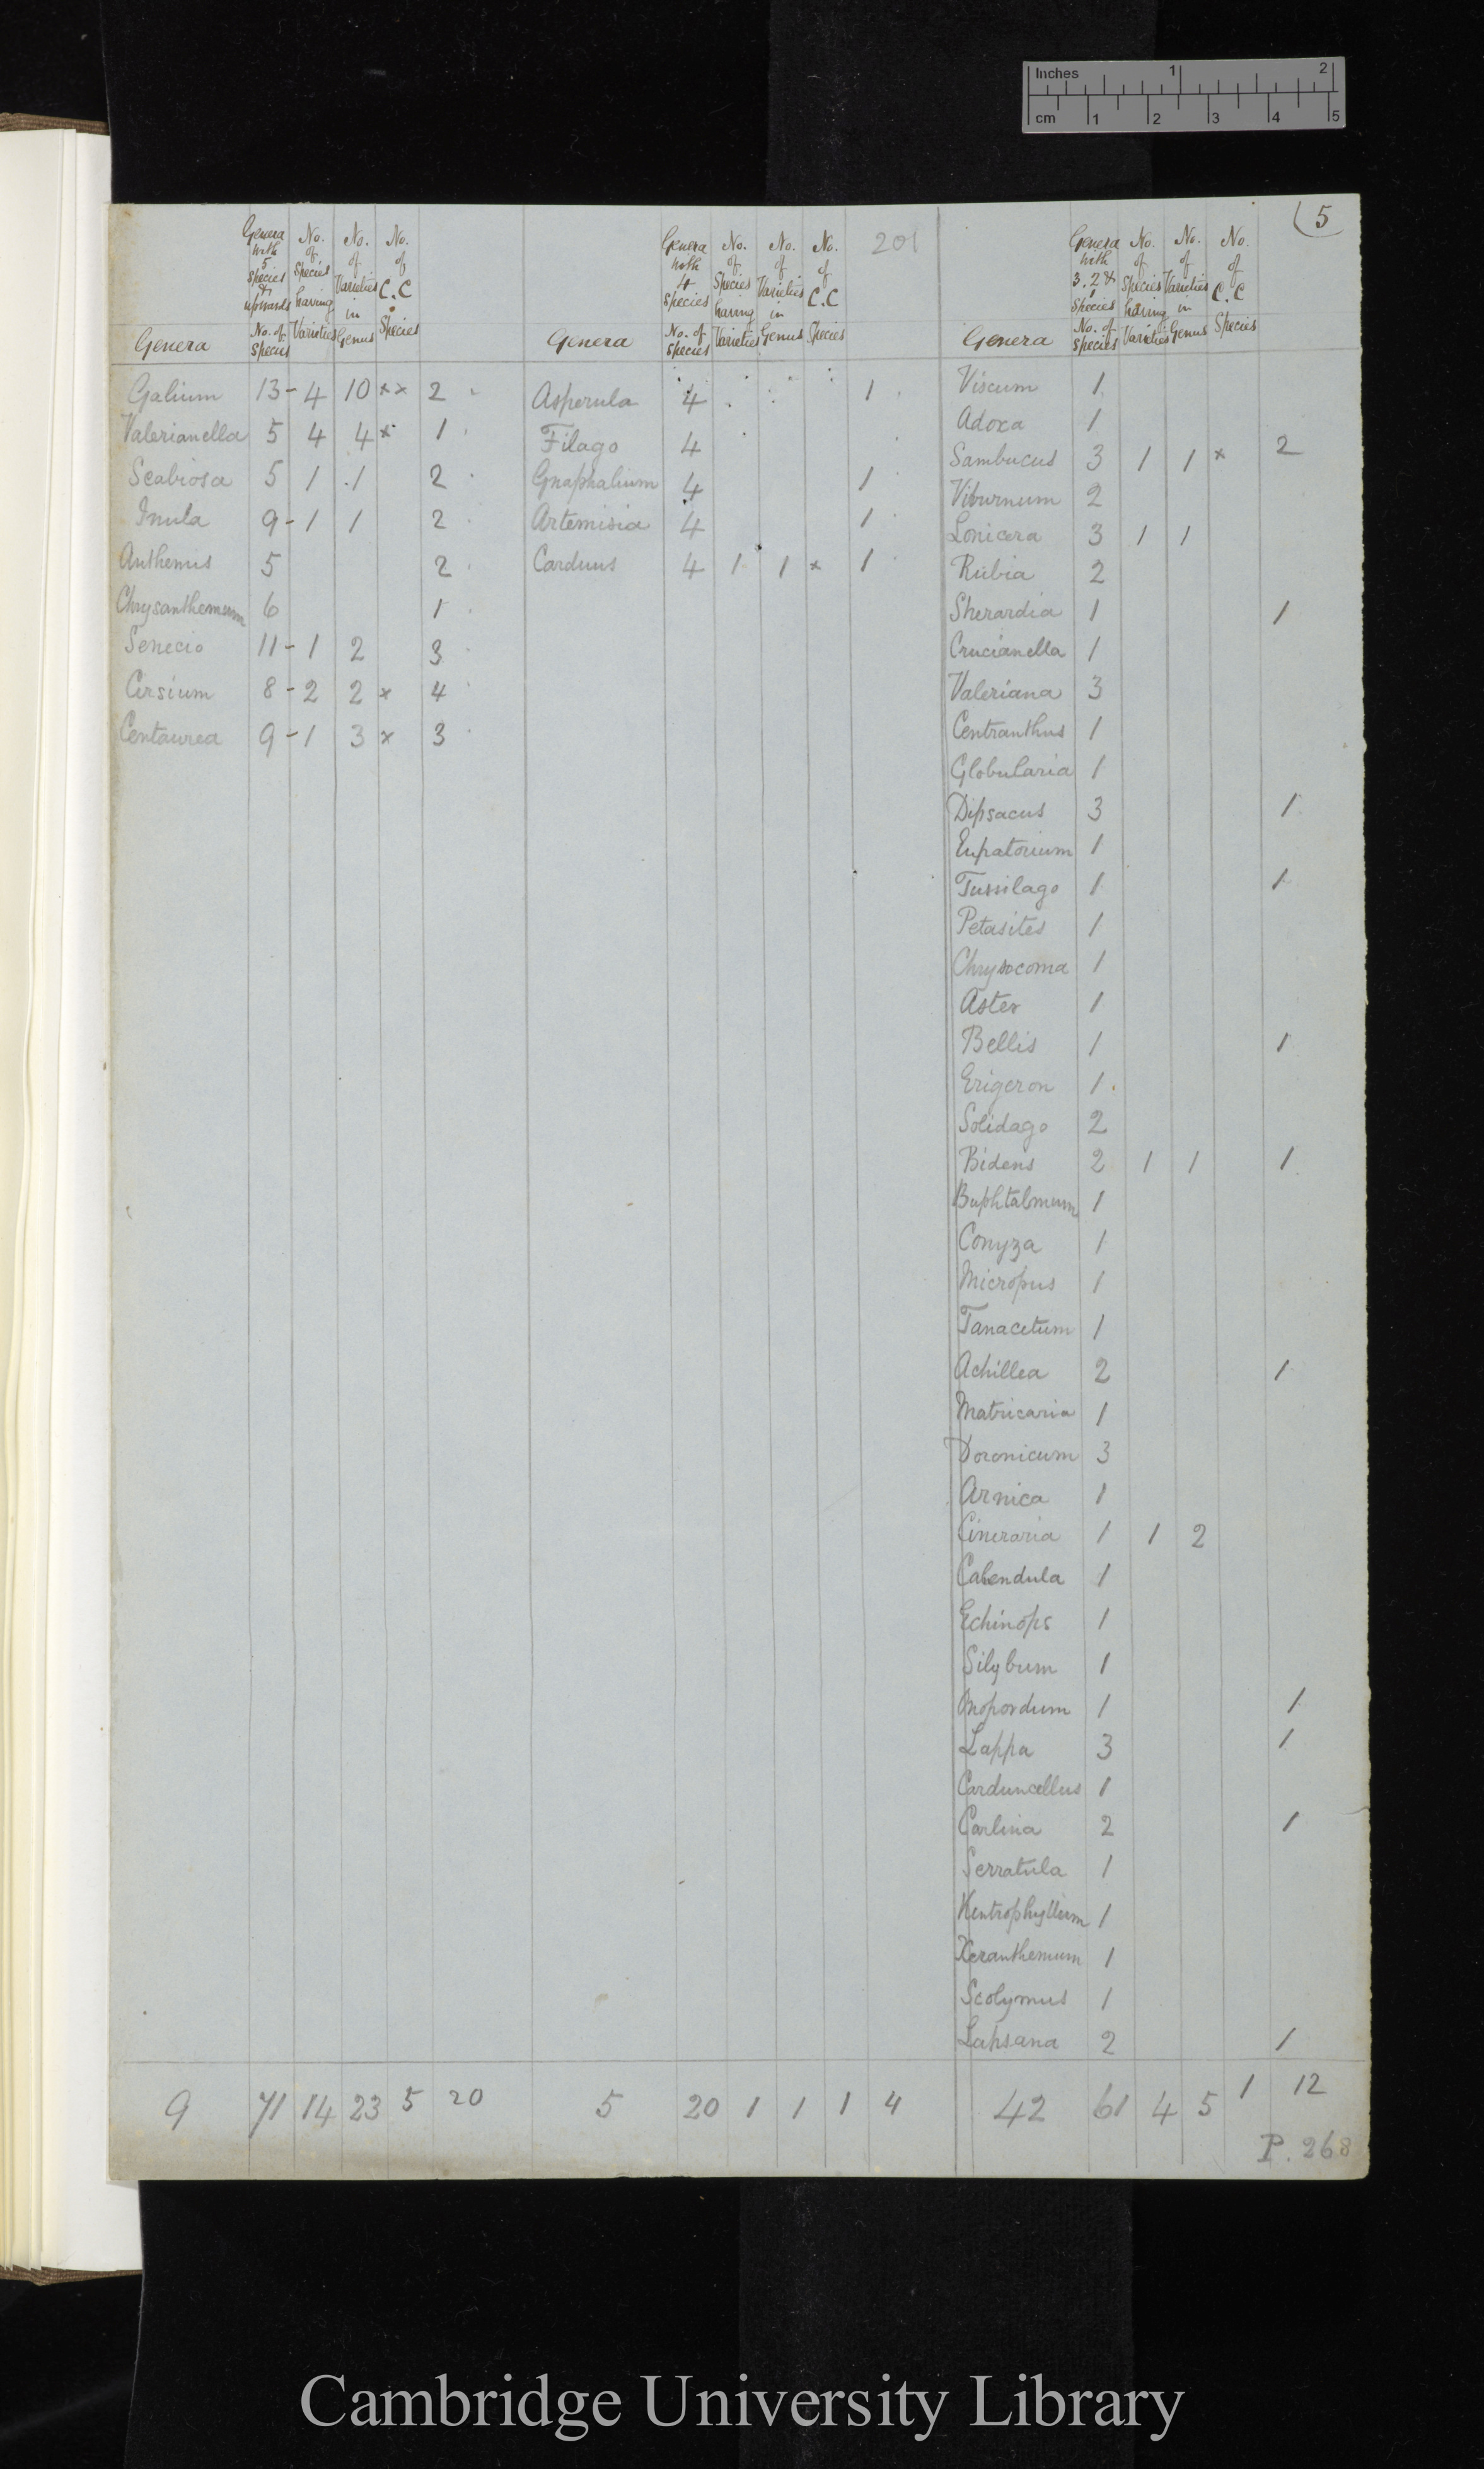 Inches 1 2
cm 1 2 3 4 5
(5
201
Genera | Genera with 5 species & upwards No. of Species | No. of Species having Varieties | No. of Varieties in Genus | No. of C.C Species
Galium 13- 4 10 xx 2
Valerianella 5 4 4 x 1
Scabiosa 5 1 1 2
Inula 9- 1 1 2
Anthemis 5 2
Chrysanthemum 6 1
Senecio 11- 1 2 3
Cirsium 8- 2 2 x 4
Centaurea 9- 1 3 x 3
9 71 14 23 5 20
Genera | Genera with 4 species No. of Species | No. of Species having Varieties | No. of Varieties in Genus | No. of C.C Species
Asperula 4 1
Filago 4
Gnaphalium 4 1
Artemisia 4 1
Carduus 4 1 1 x 1
5 20 1 1 1 4
Genera | Genera with 3. 2 & 1 Species No. of Species | No. of Species having Varieties | No. of Varieties in Genus | No. of C.C Species
Viscum 1
Adoxa 1
Sambucus 3 1 1 x 2
Viburnum 2
Lonicera 3 1 1
Rubia 2
Sherardia 1 1
Crucianella 1
Valeriana 3
Centranthus 1
Globularia 1
Dipsacus 3 1
Eupatorium 1
Tussilago 1 1
Petasites 1
Chrysocoma 1
Aster 1
Bellis 1 1
Erigeron 1
Solidago 2
Bidens 2 1 1 1
Buphtalmum 1
Conyza 1
Micropus 1
Tanacetum 1
Achillea 2 1
Matricaria 1
Doronicum 3
Arnica 1
Cineraria 1 1 2
Calendula 1
Echinops 1
Silybum 1
Onopordum 1 1
Lappa 3 1
Carduncellus 1
Carlina 2 1
Serratula 1
Kentrophyllum 1
Xeranthemum 1
Scolymus 1
Lapsana 2 1
42 61 4 5 1 12
P. 268
Cambridge University Library